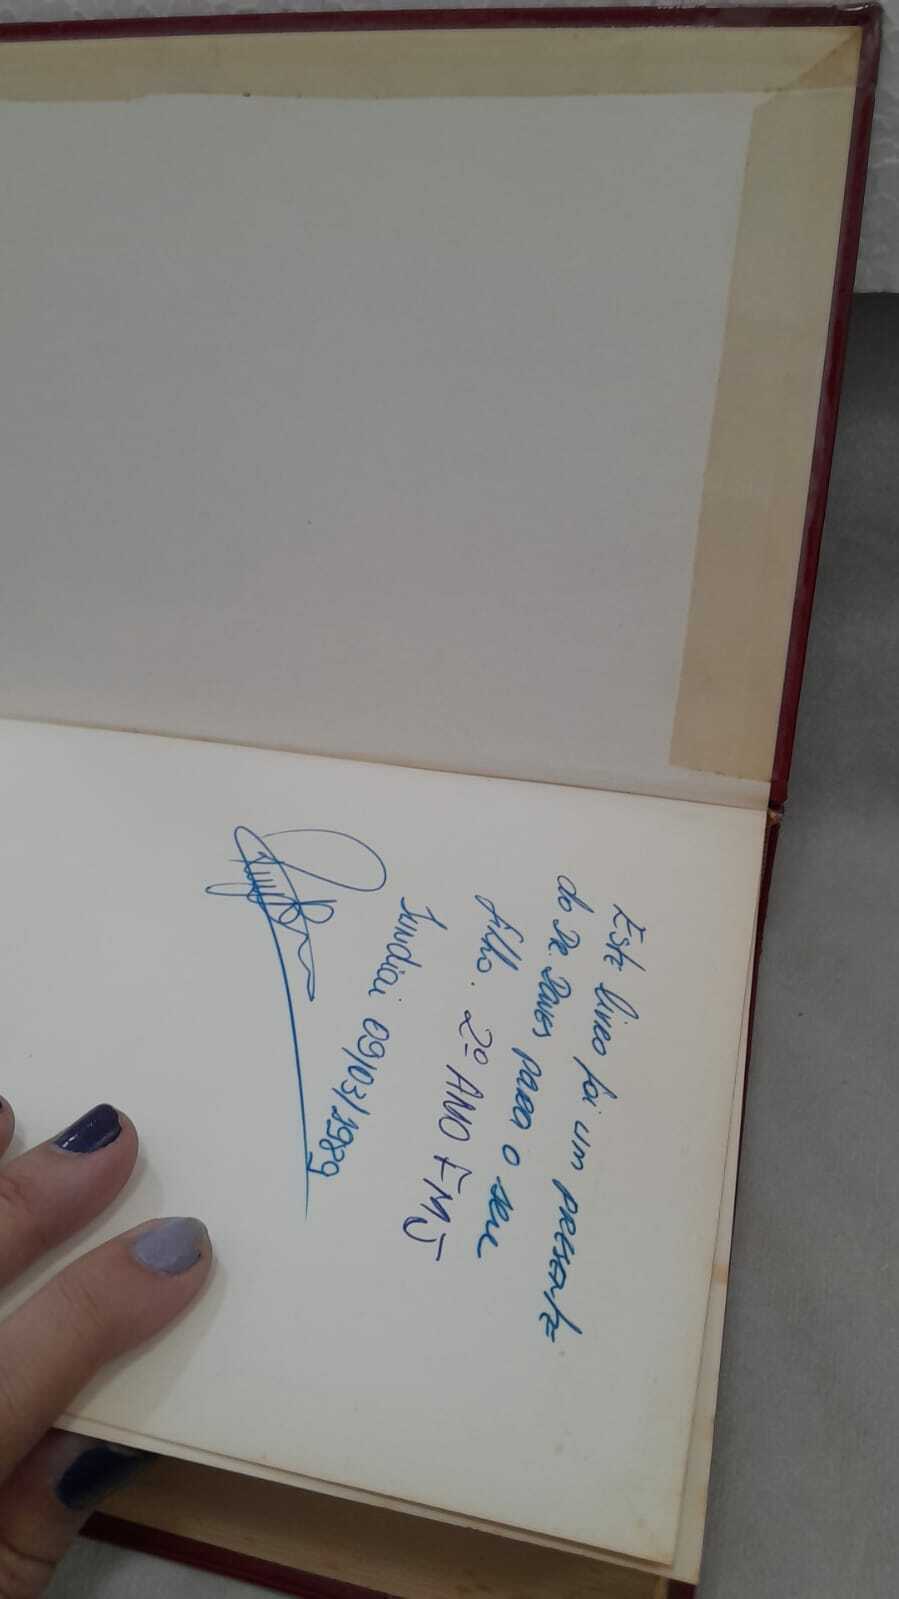 Este livro foi um presente
do Dr. para o seu
filho. 2º ANO FMJ
Jundiai 09/03/1989